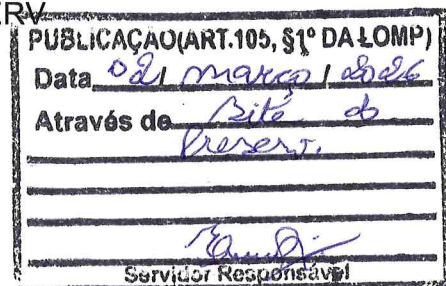 ERV
PUBLICAÇÃO(ART.105, §1º DA LOMP)
Data 02/ março / 2026
Através de Site do
Preserv.
Servidor Responsável